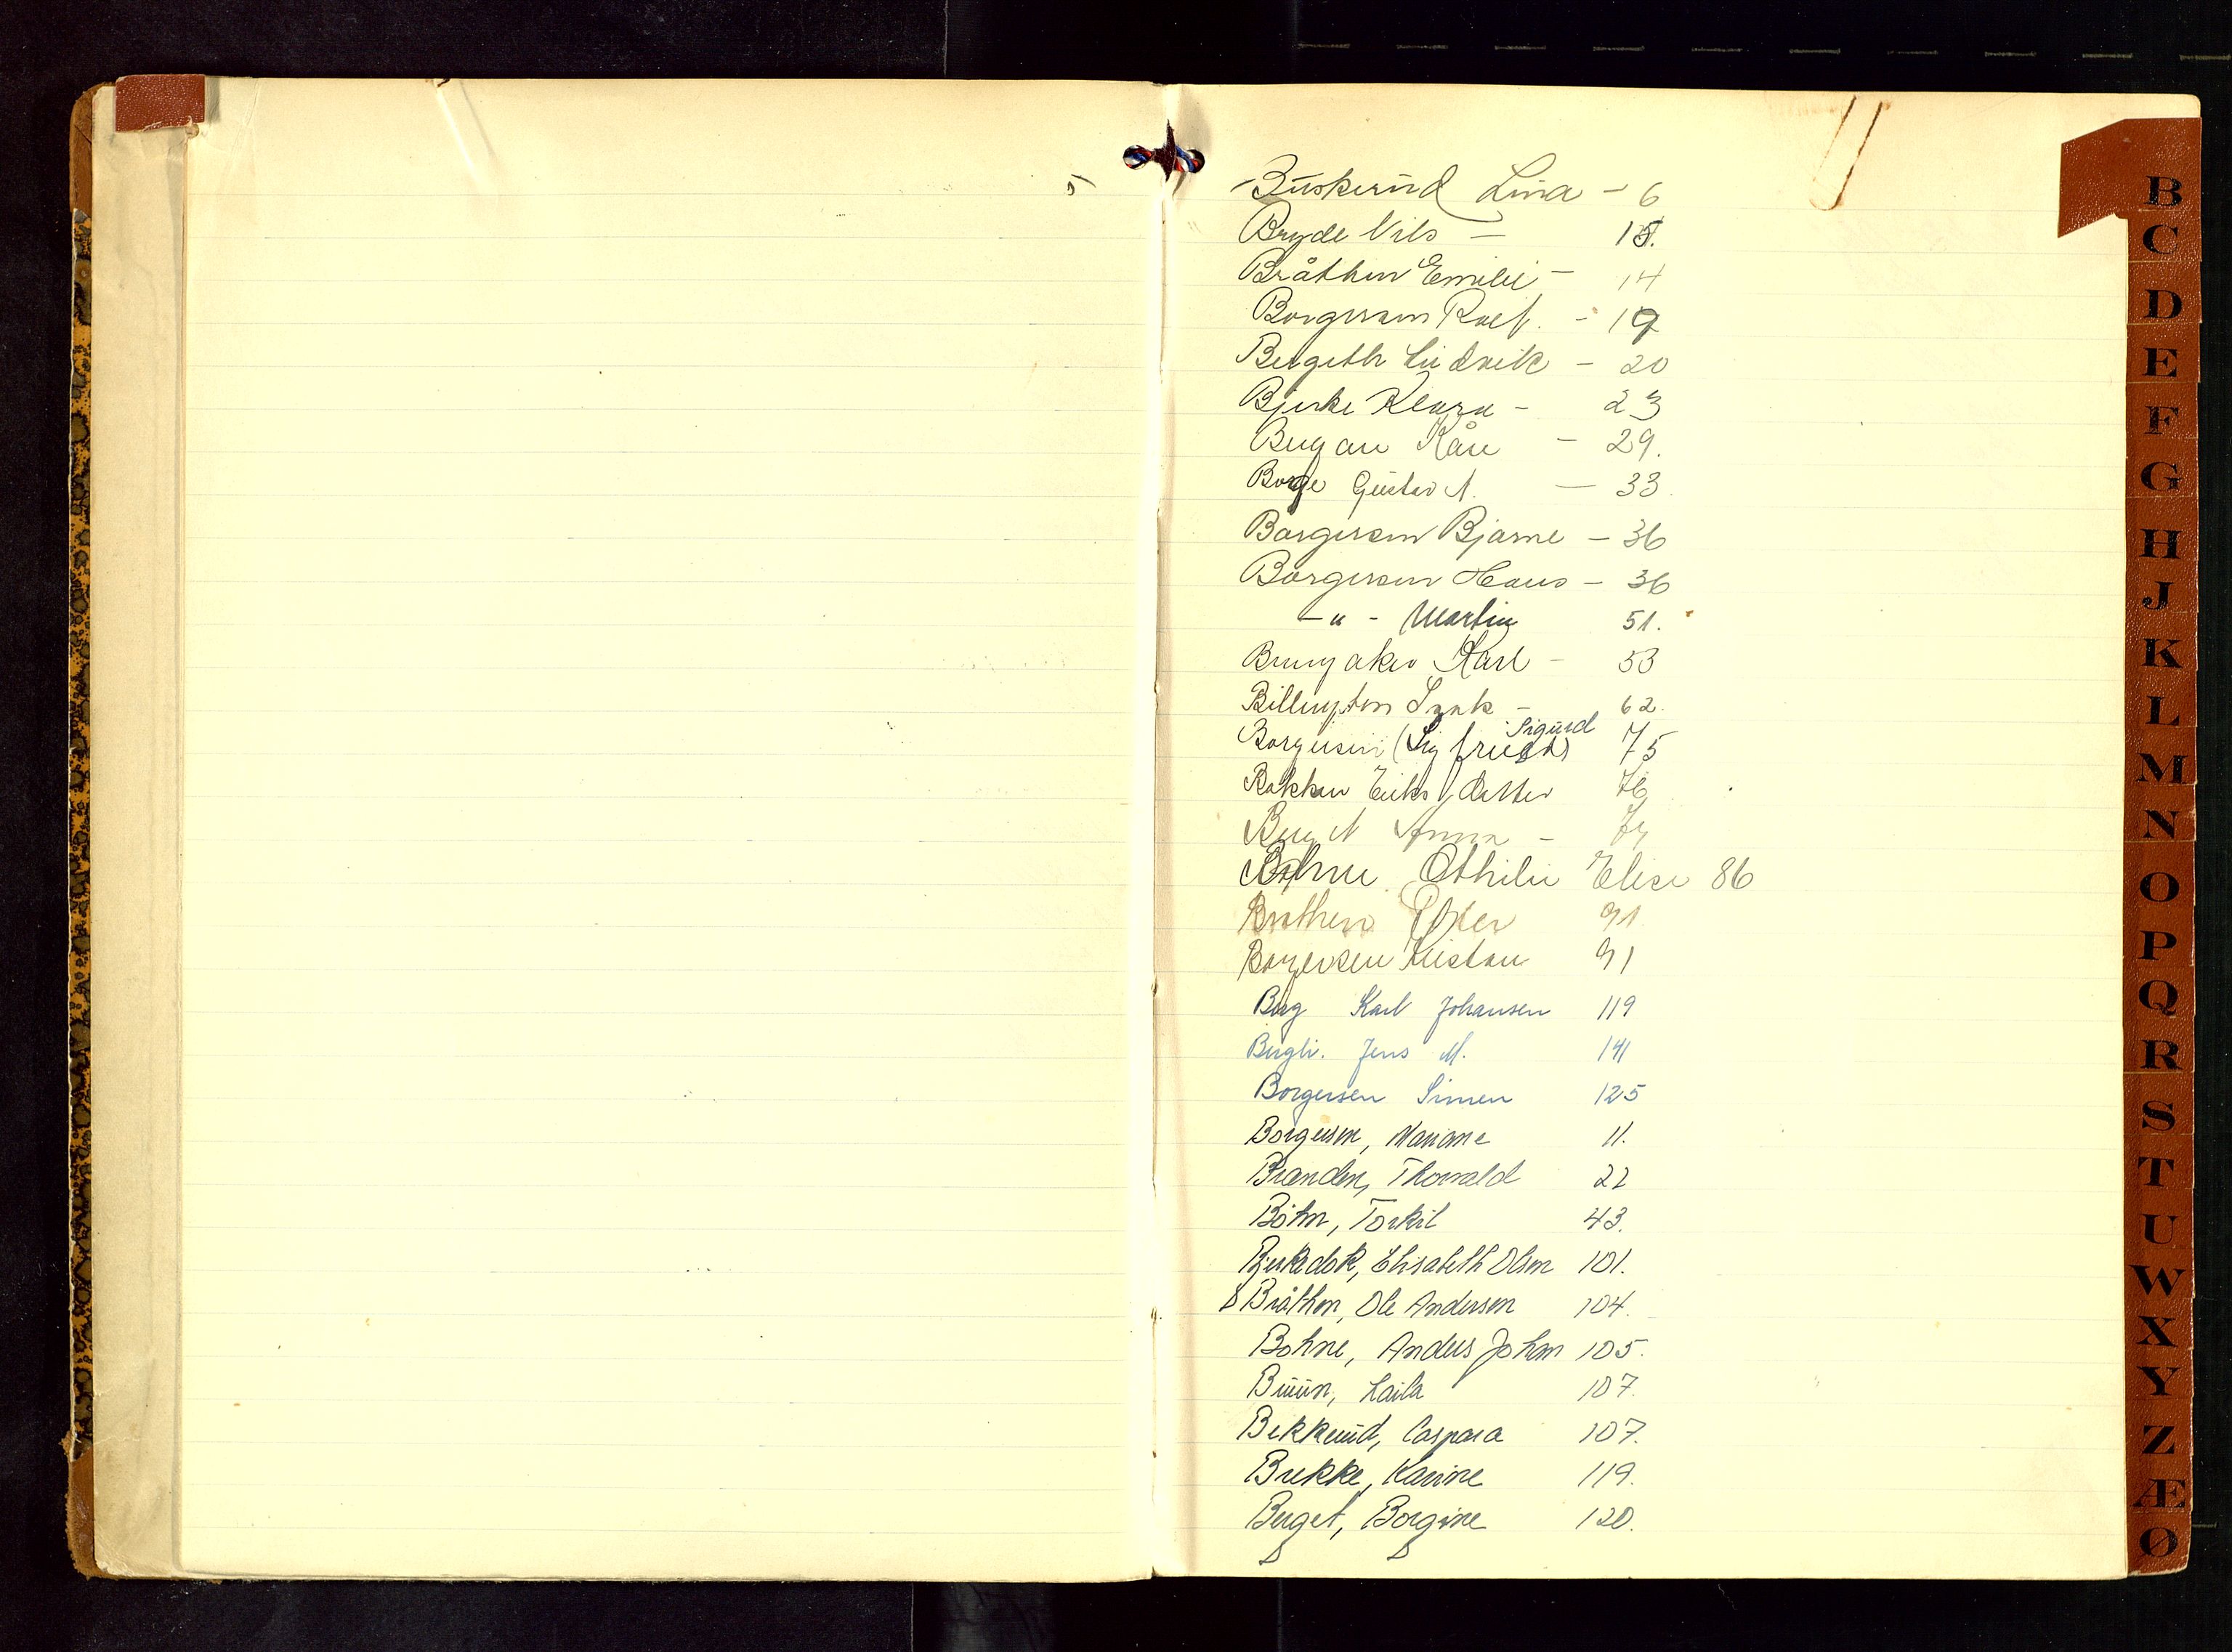 Buskerud Lina - 6
Bryde Nils - 15.
Bråthen Emilie - 14
Borgersen Rolf. - 19
Bergeth Ludvik - 20
Bjerke Klara - 23
Bergan Kåre - 29.
Borge Gustav A. - 33.
Borgersen Bjarne - 36
Borgersen Hans - 36
-"- Martin 51.
Karl - 53
Billington Isak - 62.
Sigurd
Borgersen (Sigfried) 75
Bakken Eriks datter 76
Berg A Anna -
Bøhme Othilie Elise 86
Bråthen Peter 91.
Borgersen Kristian 91
Berg Karl Johansen 119
Bergli. Jens M. 141
Borgersen Simen 125
Borgersen, Mariane 11.
Brænden, Thorvald 22
Böhn, Torkil 43.
Elisabeth Olsen 101.
Bråthen, Ole Andersen 104.
Bohne, Anders Johan 105.
Buun, Laila 107.
Bekkerud, Caspara 107.
Brekke, Karine 119.
Berget, Borgine 120.
B
C
D
E
F
G
H
J
K
L
M
N
O
P
Q
R
S
T
U
W
X
Y
Z
Æ
Ø